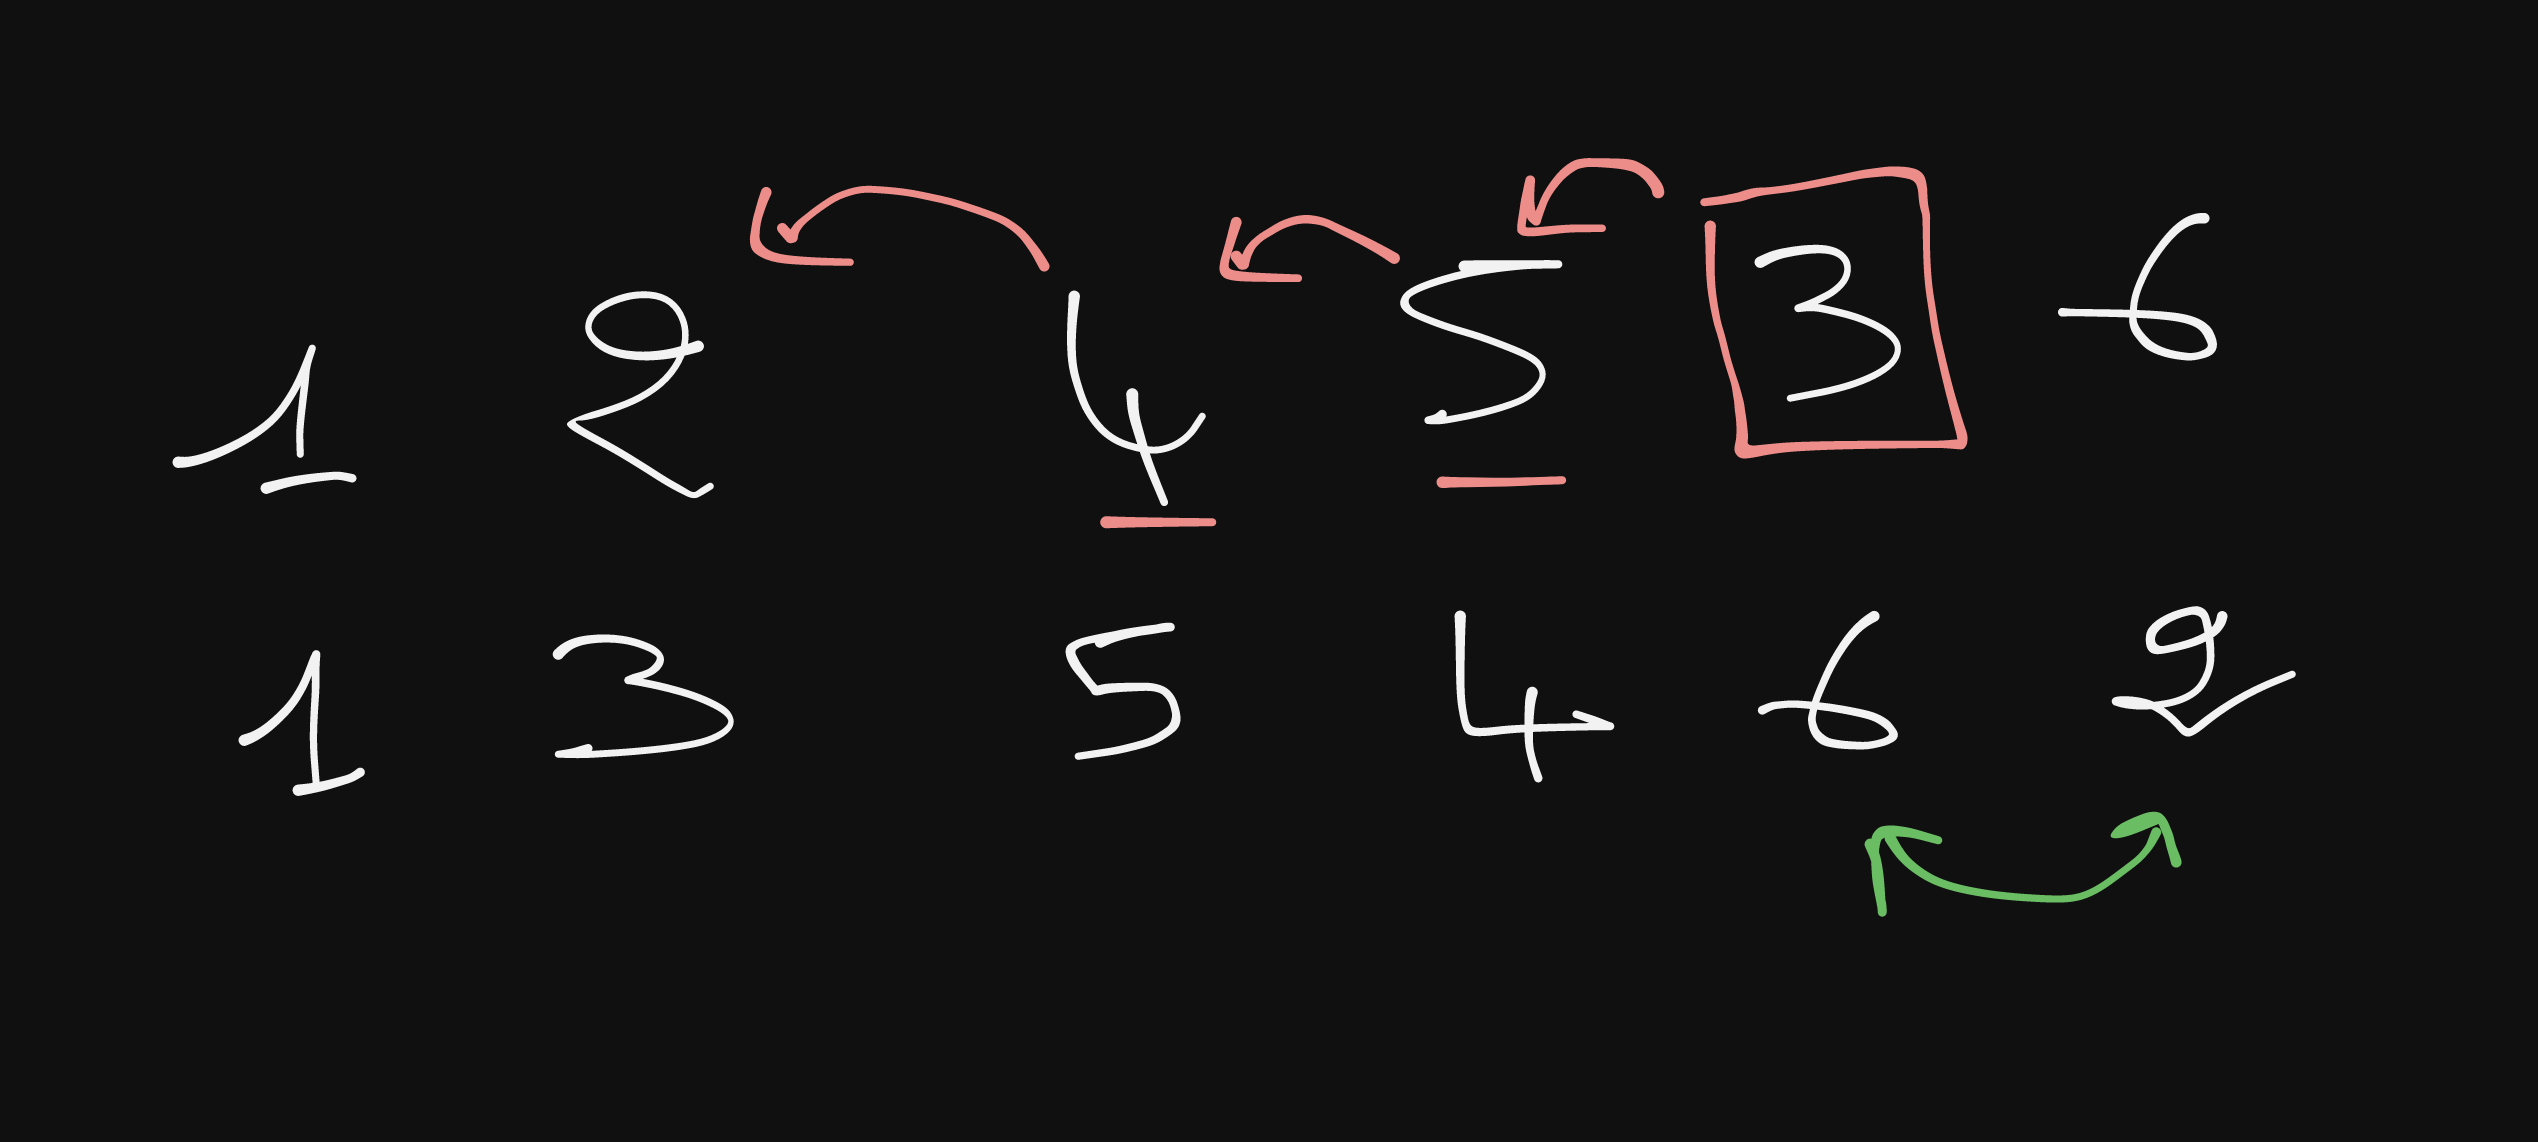 1 2 4 5 3 6
1 3 5 4 6 2